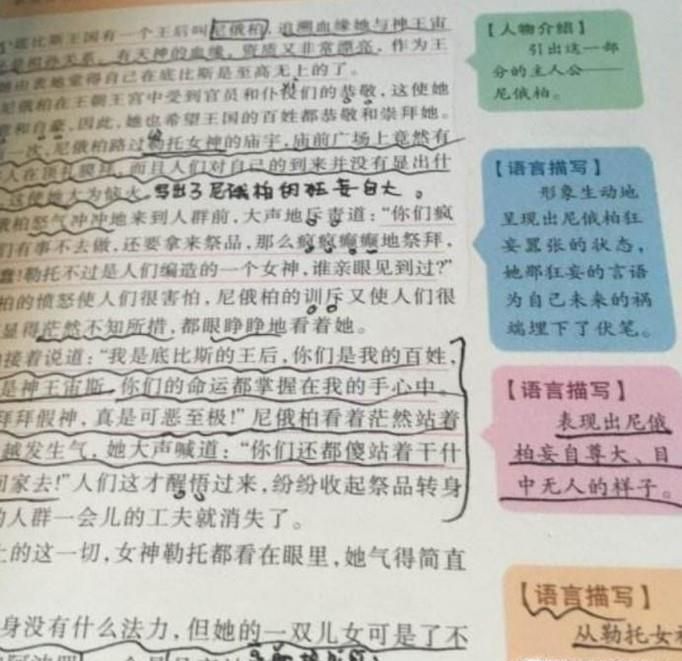 底比斯王国有一个王后叫尼俄柏,追溯血缘她与神王宙
是祖孙关系。有天神的血缘,资质又非常漂亮,作为王
她由衷地觉得自己在底比斯是至高无上的了。
尼俄柏在王朝王宫中受到官员和仆役们的恭敬,这使她
和自豪,因此,她也希望王国的百姓都恭敬和崇拜她。
一次,尼俄柏路过勒托女神的庙宇,庙前广场上竟然有
人在顶礼膜拜,而且人们对自己的到来并没有显出什
这使她大为恼火。写出了尼俄柏的狂妄自大。
俄柏怒气冲冲地来到人群前,大声地斥责道:“你们疯
们有事不去做,还要拿来祭品,那么疯疯癫癫地祭拜,
蠢!勒托不过是人们编造的一个女神,谁亲眼见到过?”
柏的愤怒使人们很害怕,尼俄柏的训斥又使人们很
显得茫然不知所措,都眼睁睁地看着她。
接着说道:“我是底比斯的王后,你们是我的百姓,
是神王宙斯,你们的命运都掌握在我的手心中。
拜拜假神,真是可恶至极!”尼俄柏看着茫然站着
越发生气,她大声喊道:“你们还都傻站着干什
回家去!”人们这才醒悟过来,纷纷收起祭品转身
的人群一会儿的工夫就消失了。
上的这一切,女神勒托都看在眼里,她气得简直
身没有什么法力,但她的一双儿女可是了不
【人物介绍】
引出这一部
分的主人公——
尼俄柏。
【语言描写】
形象生动地
呈现出尼俄柏狂
妄嚣张的状态,
她那狂妄的言语
为自己未来的祸
端埋下了伏笔。
【语言描写】
表现出尼俄
柏妄自尊大、目
中无人的样子。
【语言描写】
从勒托女